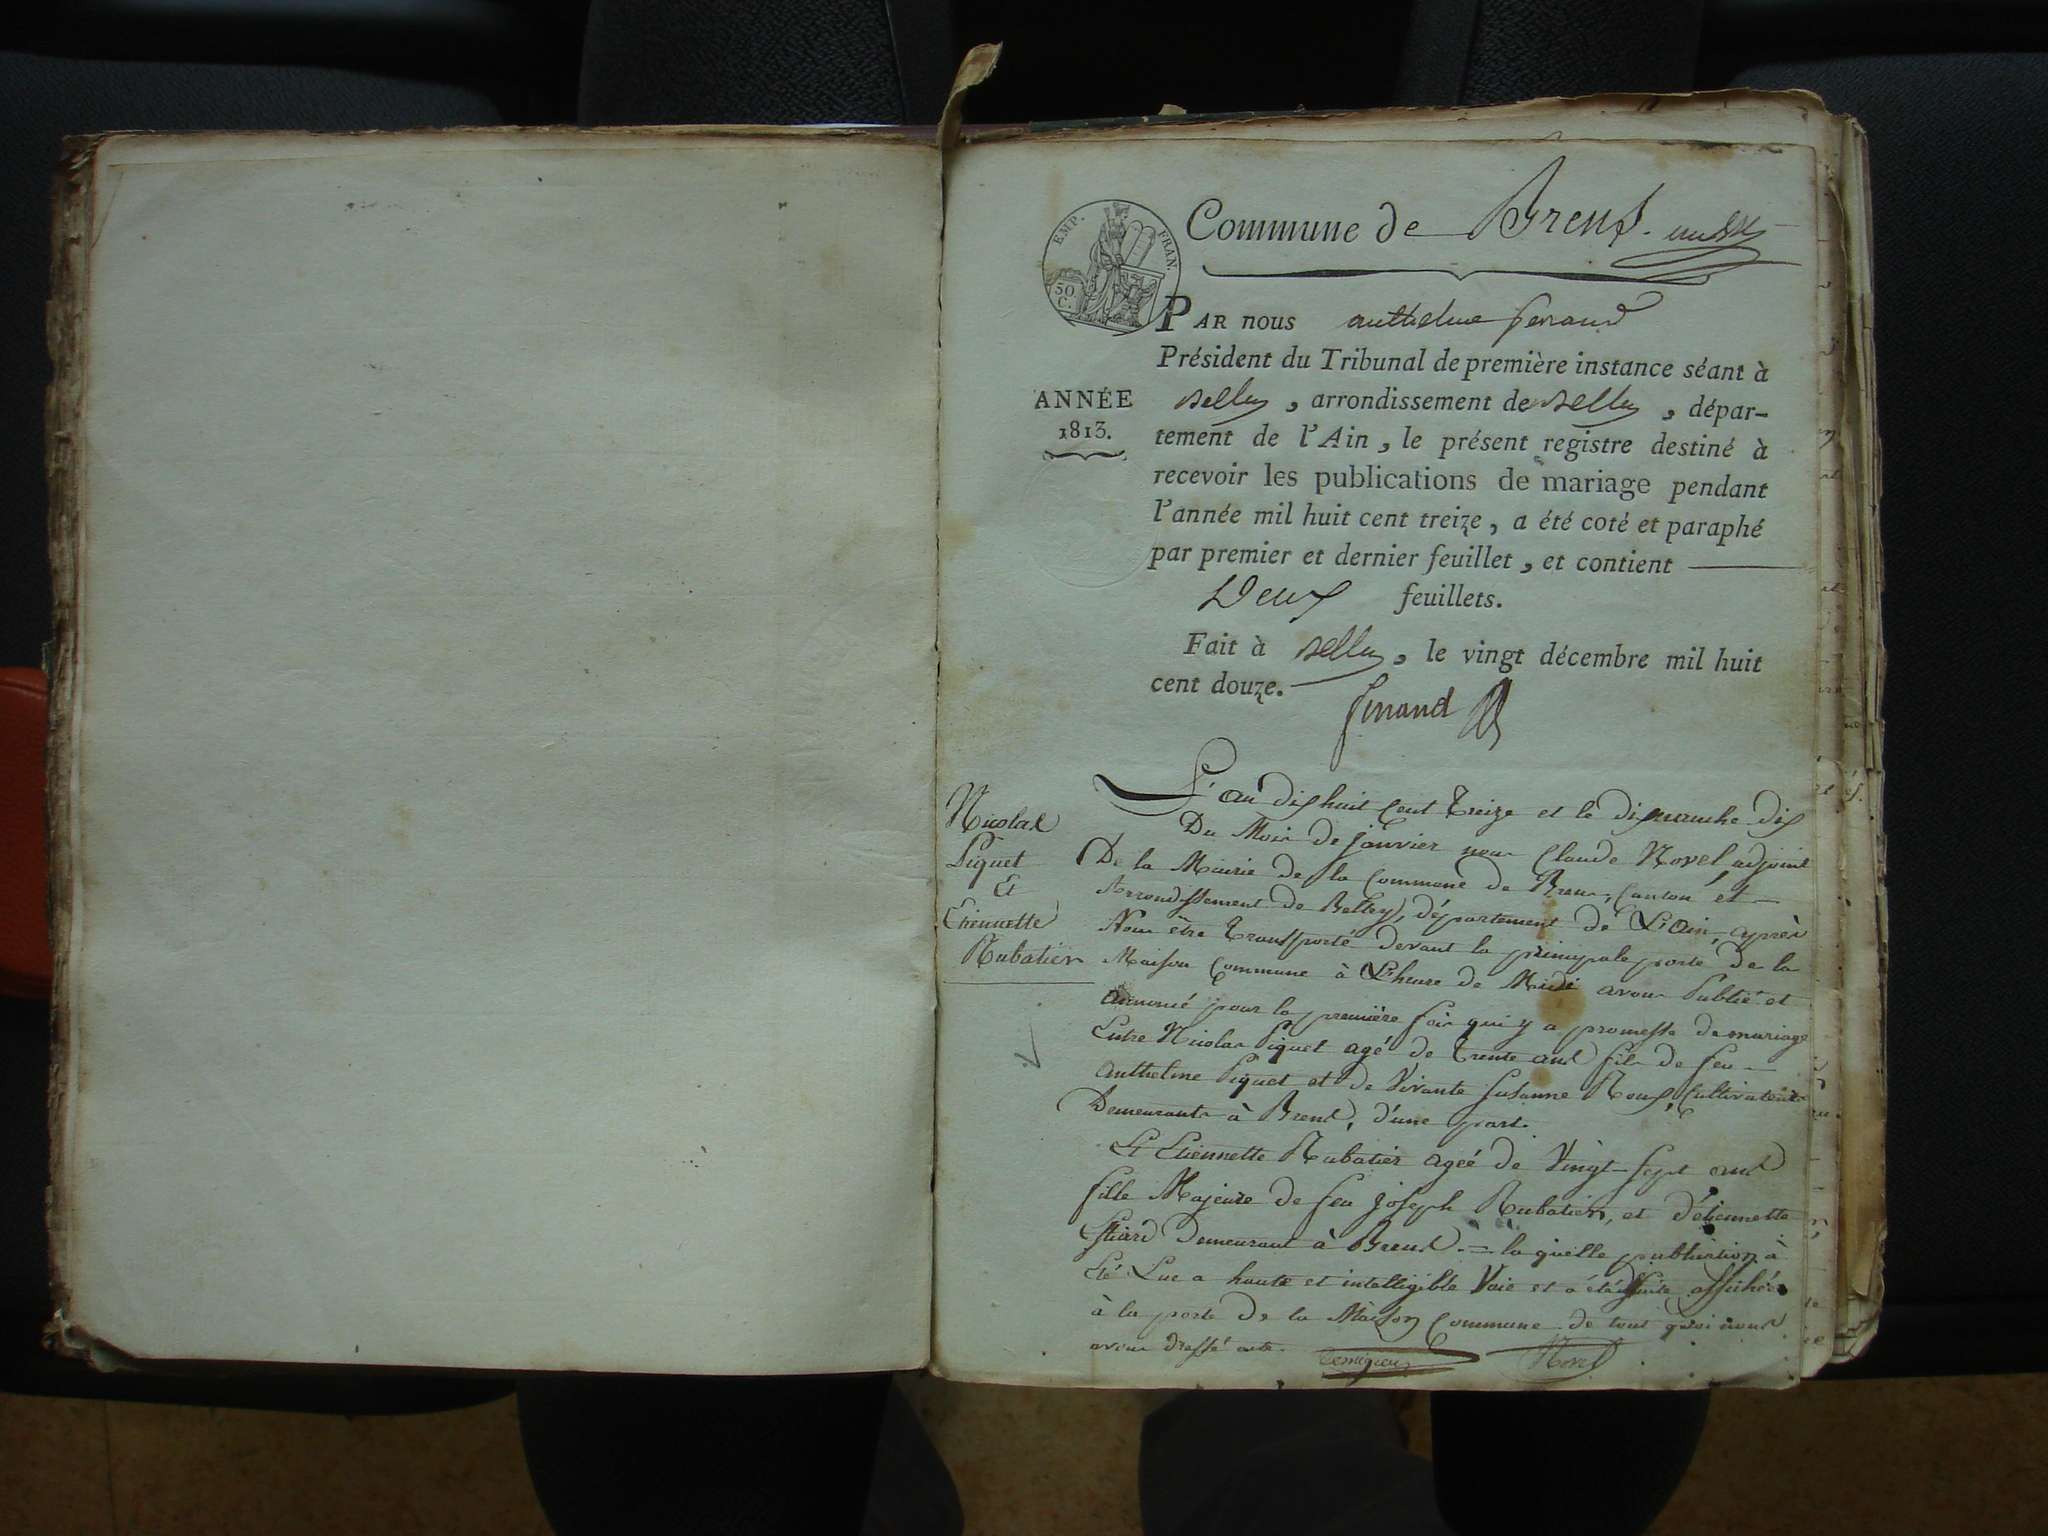 Commune de Brens.
EMP. FRAN.
50 C.
PAR nous anthelme ferrand
Président du Tribunal de première instance séant à
ANNÉE
1813.
Belley, arrondissement de Belley, dépar-
tement de l'Ain, le présent registre destiné à
recevoir les publications de mariage pendant
l'année mil huit cent treize, a été coté et paraphé
par premier et dernier feuillet, et contient
Deux feuillets.
Fait à Belley, le vingt décembre mil huit
cent douze.
ferrand
Nicolas
Piquet
Et
Etiennette
Rubatier
L'an dix huit Cent Treize et le dimanche dix
Du Mois de janvier nous Claude Novel, adjoint
De la Mairie de la Commune de Brens, Canton et
Arrondissement de Belley, département de L'Ain, après
Nous être Transporté devant la principale porte de la
Maison Commune à L'heure de Midi avons Publié et
annoncé pour la première fois qui y a promesse de mariage
Entre Nicolas Piquet agé de trente ans fils de feu
anthelme Piquet et de Vivante Susanne Roux, Cultivateurs
Demeurants à Brens, d'une part.
Et Etiennette Rubatier ageé de Vingt-sept ans
fille Majeure de feu joseph Rubatier, et d'étiennette
Demeurant à Brens. = la quelle publication à
Eté Lue a haute et intelligible Voie et a été affichée
à la porte de la Maison Commune de tout quoi nous
avons dressé acte.
Novel